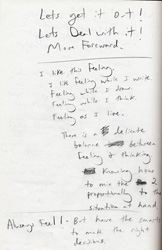 Lets get it out!
Lets Deal with it!
More Foreward.
I like this feeling.
I like feeling while I write.
Feeling while I draw.
Feeling while I think.
Feeling as I live.
There is a delicate
balance between
feeling & thinking.
Knowing how
to mix the 2
proportionally to the
situation @ hand
Always Feel! - But have the smarts
to make the right
decisions.